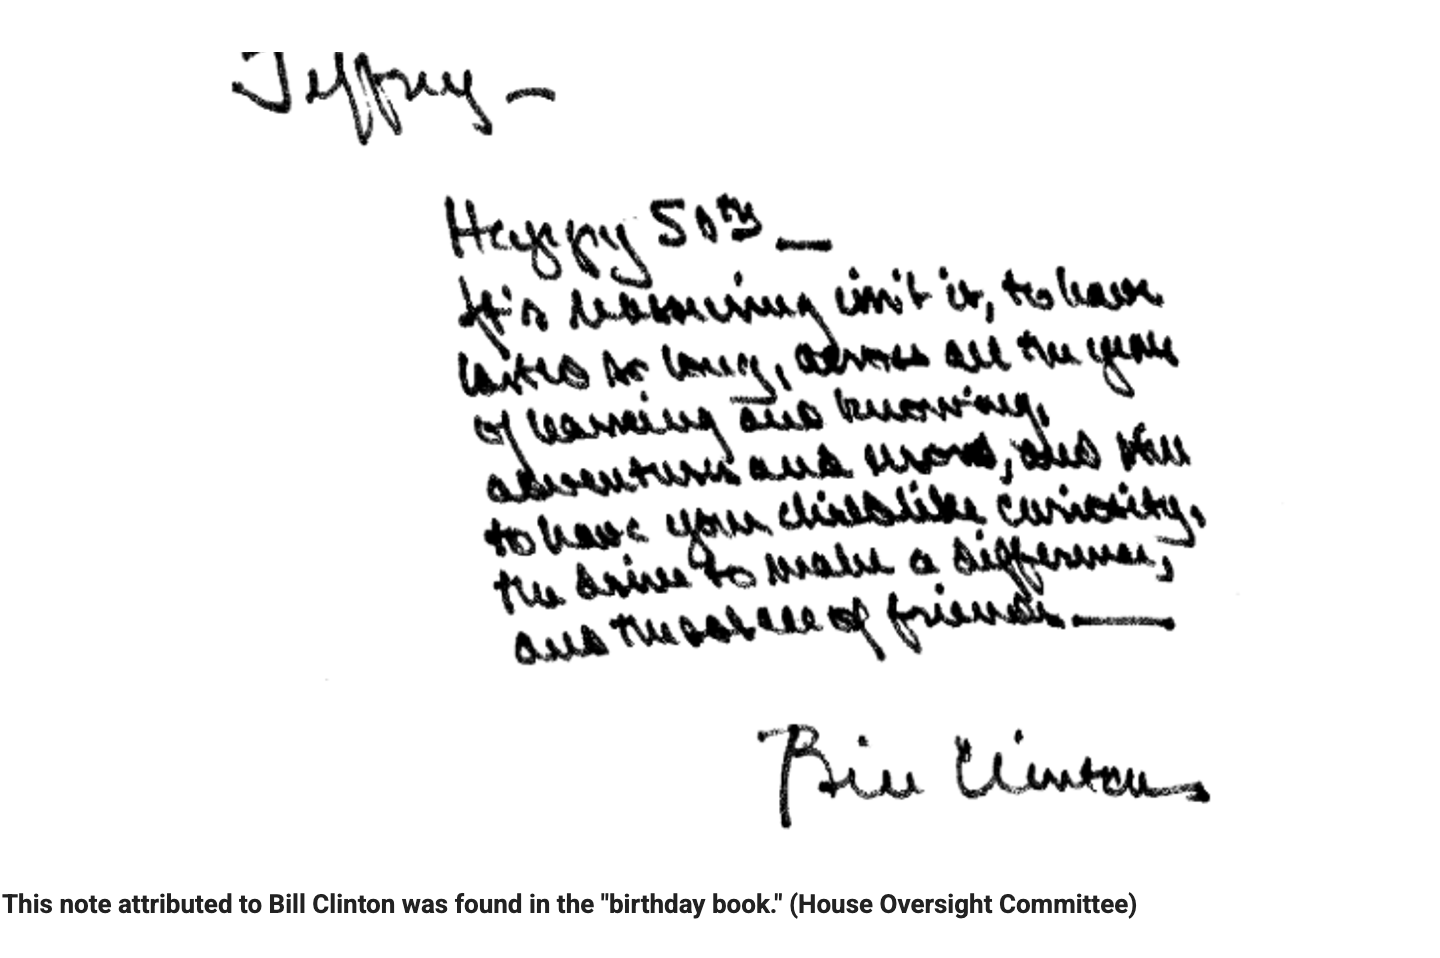 Jeffrey —
Happy 50th —
It's reassuring isn't it, to have
lasted so long, across all the years
of learning and knowing,
adventures and and still
to have your childlike curiosity,
the drive to make a difference,
and the solace of friends —
Bill Clinton
This note attributed to Bill Clinton was found in the "birthday book." (House Oversight Committee)